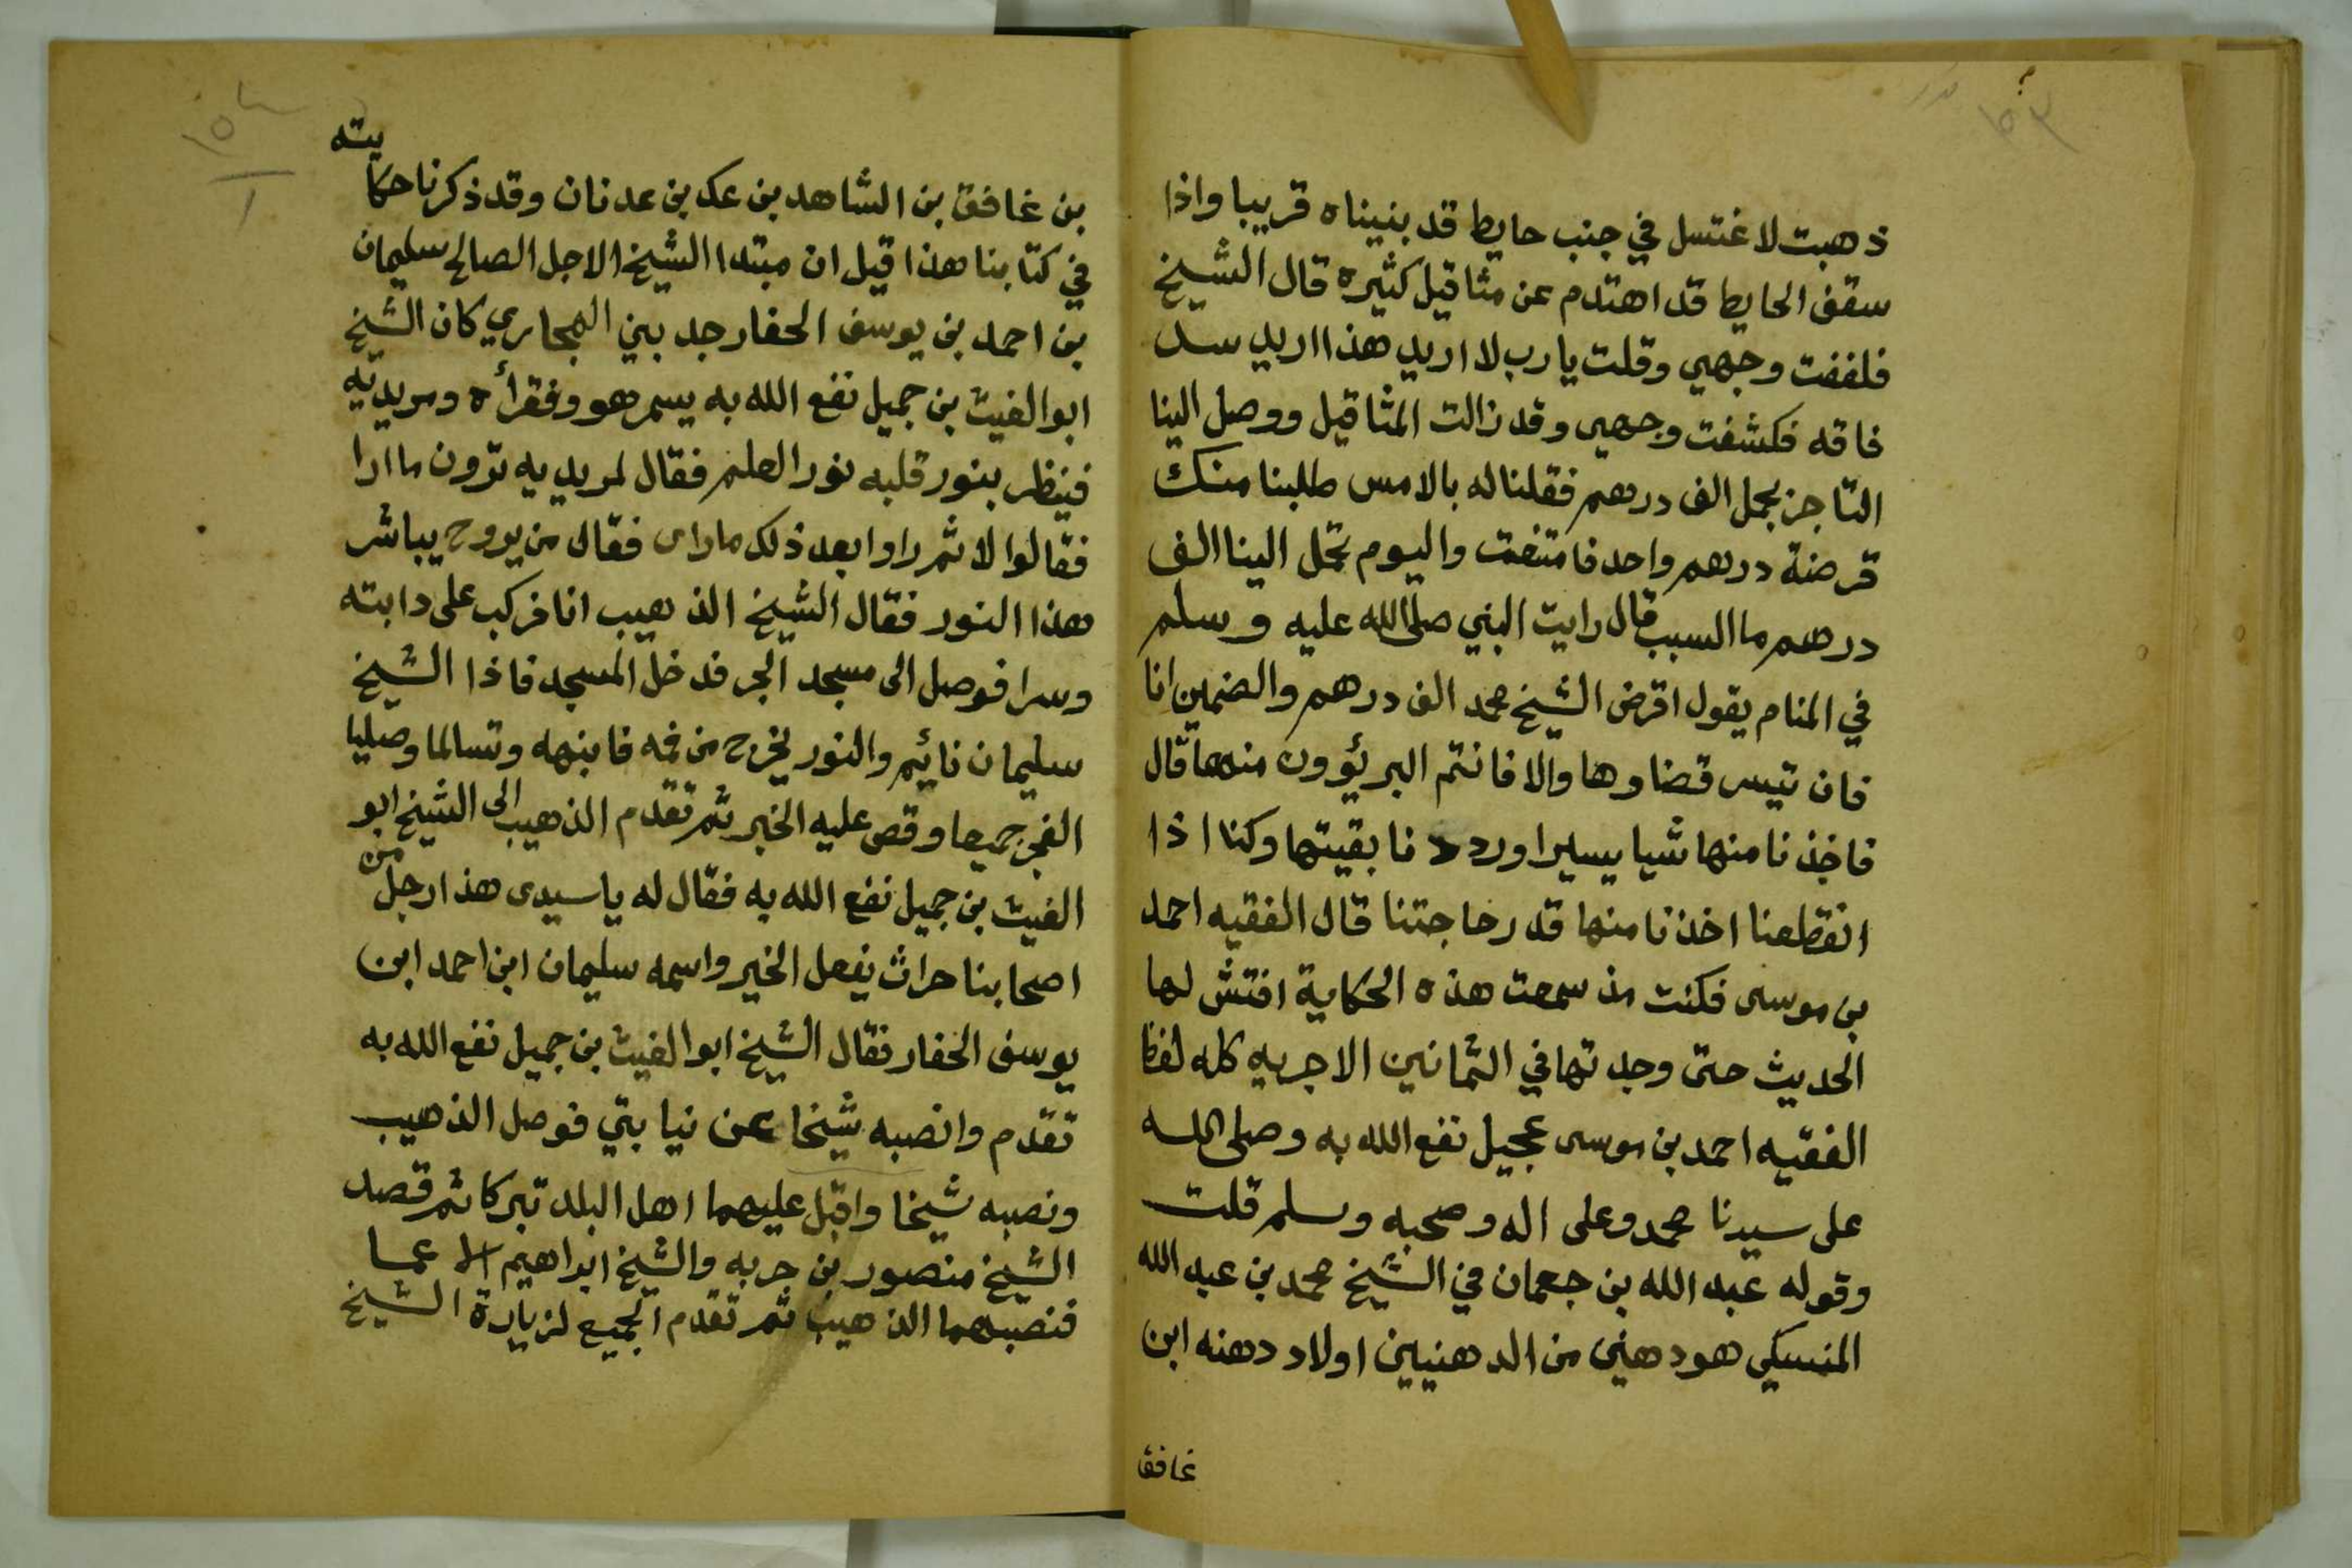 ذهبت لاغتسل في جنب حايط قد بنيناه قريبا واذا
سقف الحايط قد اهتدم عن مثاقيل كثيره قال الشيخ
فلففت وجهي وقلت يا رب لا اريد هذا اريد سد
فاقه فكشفت وجهي وقد زالت المثاقيل ووصل الينا
التاجر بجمل الف درهم فقلنا له بالامس طلبنا منك
قرضة درهم واحد فامتنعت واليوم تحمل الينا الف
درهم ما السبب قال رايت النبي صلى الله عليه وسلم
في المنام يقول اقرض الشيخ محمد الف درهم والضمين انا
فان تيسر قضاوها والا فانتم البريؤون منها قال
فاخذنا منها شيا يسيرا ورددنا بقيتها وكنا اذا
انقطعنا اخذنا منها قدر حاجتنا قال الفقيه احمد
بن موسى فكنت مذ سمعت هذه الحكاية افتش لها
الحديث حتى وجدتها في الثمانين الاجريه كله لفظ
الفقيه احمد بن موسى عجيل نفع الله به وصلى الله
على سيدنا محمد وعلى اله وصحبه وسلم قلت
وقوله عبد الله بن جعمان في الشيخ محمد بن عبد الله
المنسكي هو دهني من الدهنيين اولاد دهنه ابن
غافق
١٥٣
١٥
١
بن غافق بن الشاهد بن عك بن عدنان وقد ذكرنا حكايته
في كتابنا هذا قيل ان مبتدا الشيخ الاجل الصالح سليمان
بن احمد بن يوسف الحفار جد بني الهجاري كان الشيخ
ابوالغيث بن جميل نفع الله به يسمر هو وفقرأه ومريديه
فينظر بنور قلبه نور العلم فقال لمريديه ترون ما ارا
فقالوا لا ثم راوا بعد ذلك ماراى فقال من يروح يباشر
هذا النور فقال الشيخ الذهيب انا فركب على دابته
وسرا فوصل الى مسجد الجر فدخل المسجد فاذا الشيخ
سليمان نائيم والنور يخرج من فمه فانبهه وتسالما وصليا
الفجر جميعا وقص عليه الخبر ثم تقدم الذهيب الى الشيخ ابو
الغيث بن جميل نفع الله به فقال له يا سيدى هذا رجل من
اصحابنا حراث يفعل الخير واسمه سليمان ابن احمد ابن
يوسف الحفار فقال الشيخ ابوالغيث بن جميل نفع الله به
تقدم وانصبه شيخا عن نيابتي فوصل الذهيب
ونصبه شيخا واقبل عليهما اهل البلد تبركا ثم قصد
الشيخ منصور بن حربه والشيخ ابراهيم عما
فنصبهما الذهيب ثم تقدم الجميع لزيارة الشيخ